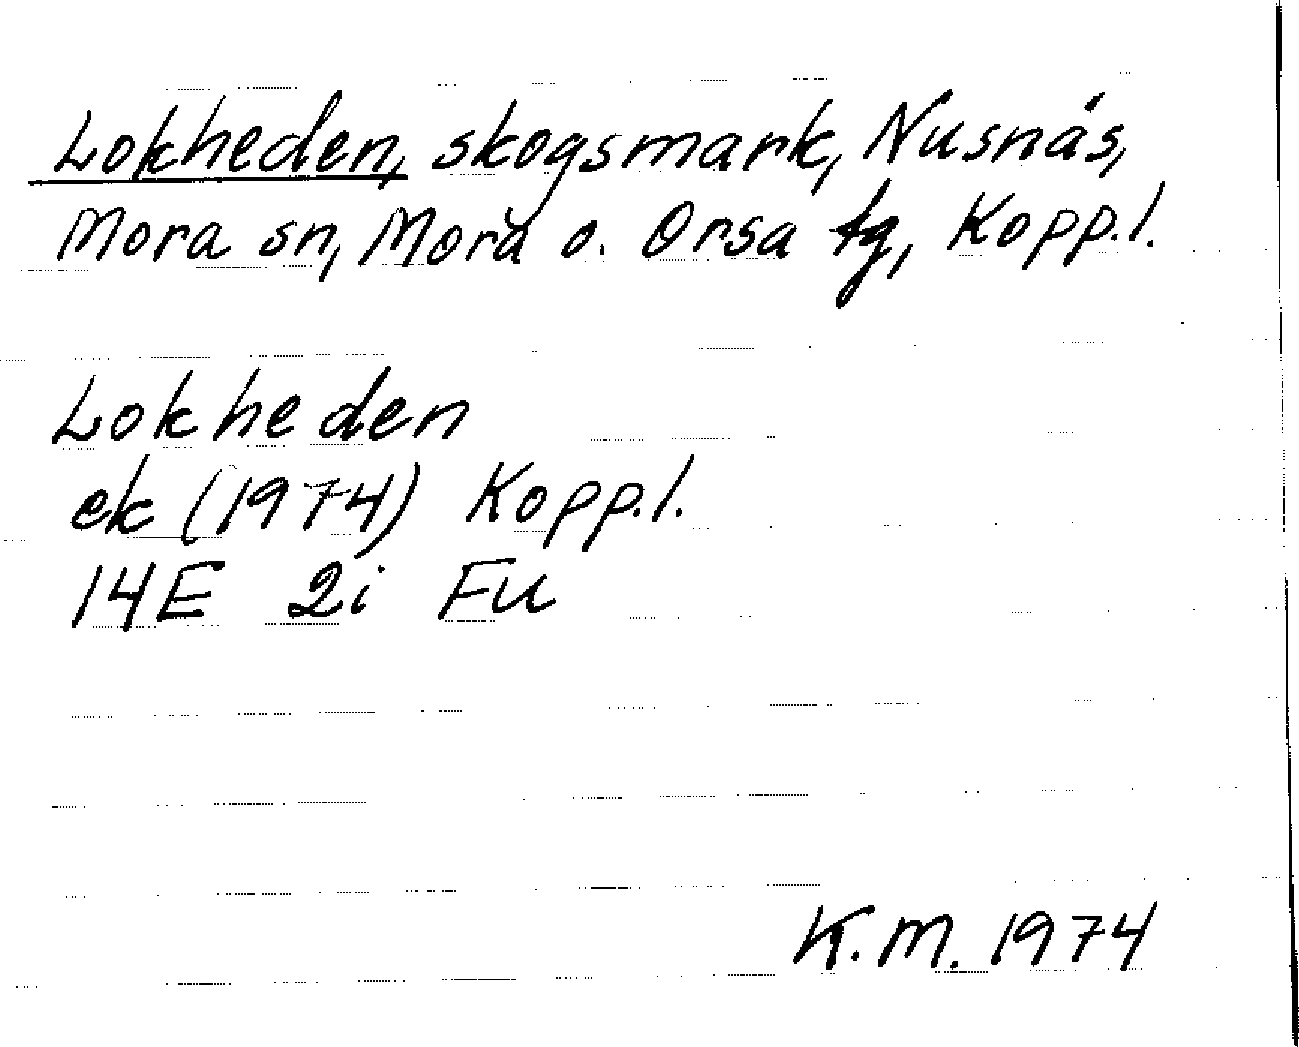 Lokheden, skogsmark, Nusnäs,
Mora sn, Mora o. Orsa tg, Kopp.l.
Lokheden
ek (1974) Kopp.l.
14E 2i Fu
K.M. 1974